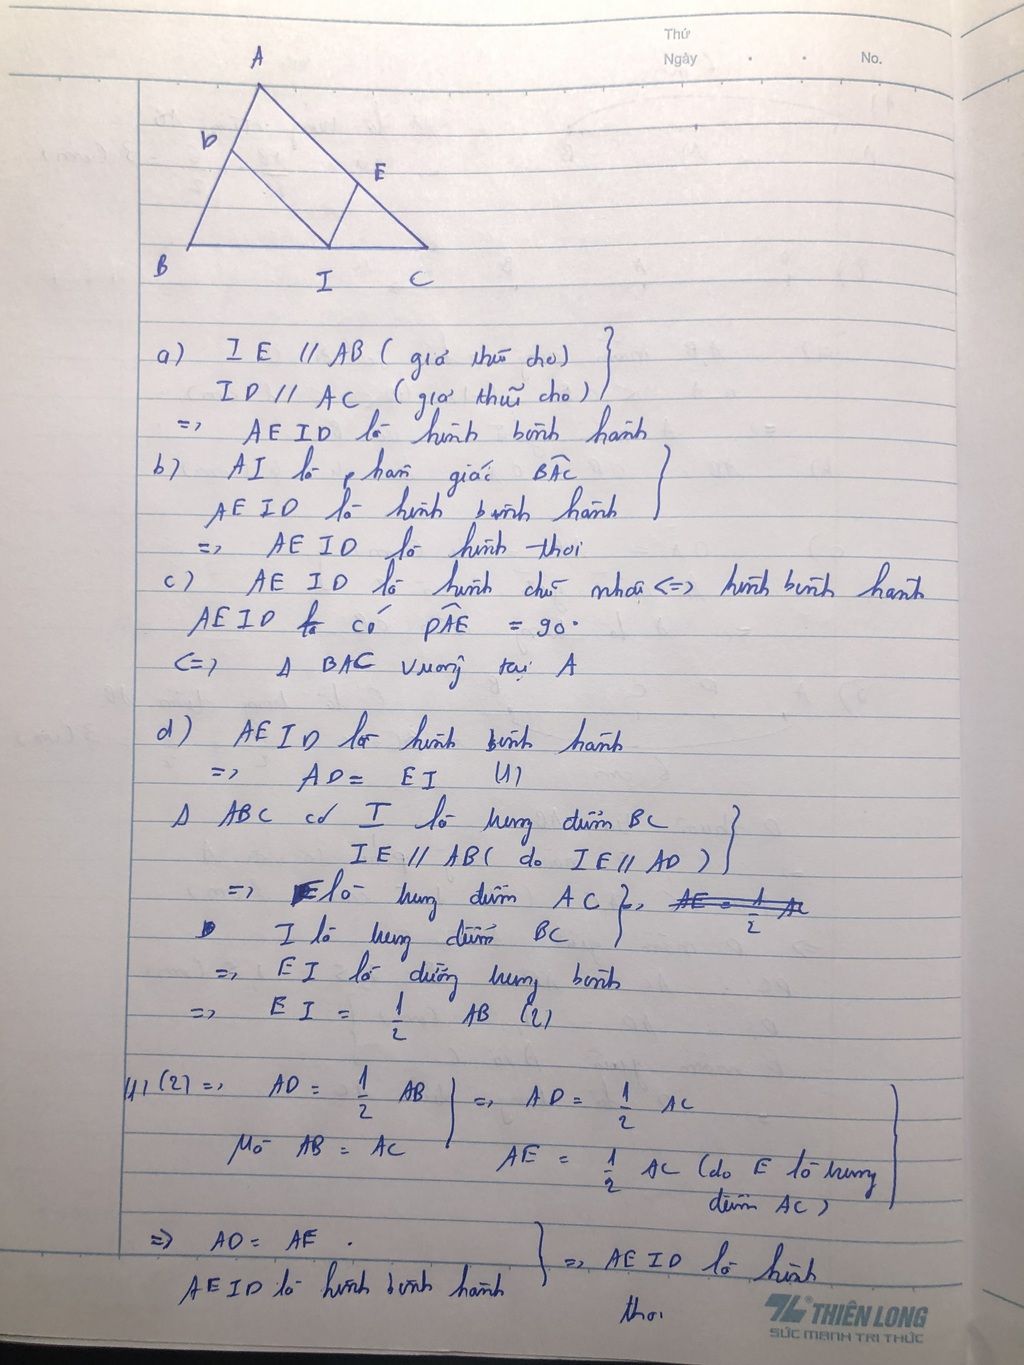 Thứ
Ngày . . No.
A
D
E
B
I
C
a) IE // AB ( giả thiết cho)
ID // AC ( giả thiết cho)
=> AEID là hình bình hành
b) AI là phân giác BAC
AEID là hình bình hành
=> AEID là hình thoi
c) AEID là hình chữ nhật <=> hình bình hành
AEID có DAE = 90°
<=> Δ BAC vuông tại A
d) AEID là hình bình hành
=> AD = EI (1)
Δ ABC có I là trung điểm BC
IE // AB ( do IE // AD )
=> E là trung điểm AC => AE = 1/2 AC
I là trung điểm BC
=> EI là đường trung bình
=> EI = 1/2 AB (2)
(1) (2) => AD = 1/2 AB => AD = 1/2 AC
Mà AB = AC AE = 1/2 AC (do E là trung
điểm AC)
=> AD = AE .
AEID là hình bình hành => AEID là hình
thoi
THIÊN LONG
SỨC MẠNH TRI THỨC